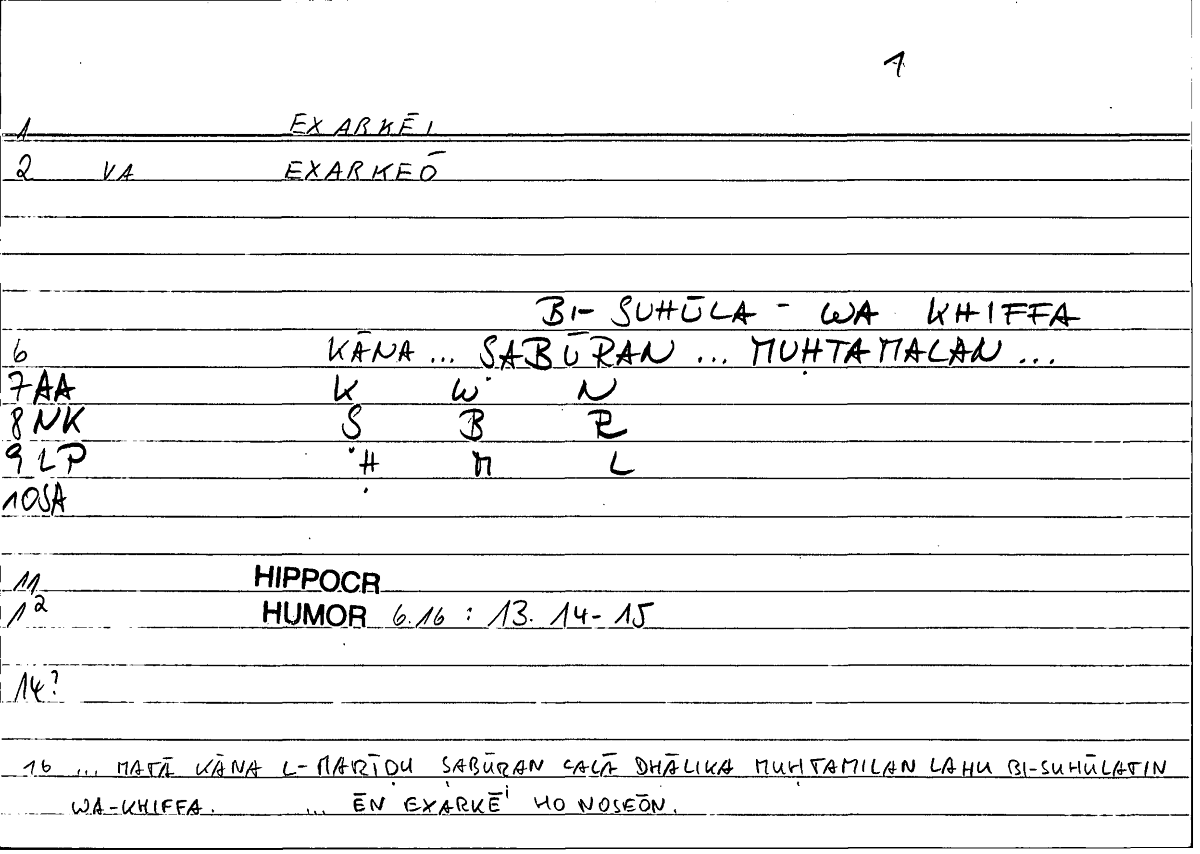 1
1 EXARKĒI
2 VA EXARKEŌ
BI-SUHŪLA - WA KHIFFA
6 KĀNA ... ṢABŪRAN ... MUḤTAMALAN ...
7AA K W N
8NK Ṣ B R
9LP Ḥ M L
10SA
11 HIPPOCR
12 HUMOR 6.16 : 13. 14-15
14?
16 ... MATĀ KĀNA L-MARĪḌU ṢABŪRAN CALĀ DHĀLIKA MUḤTAMILAN LAHU BI-SUHŪLATIN
WA-KHIFFA. ... ĒN EXARKĒI HO NOSEŌN.